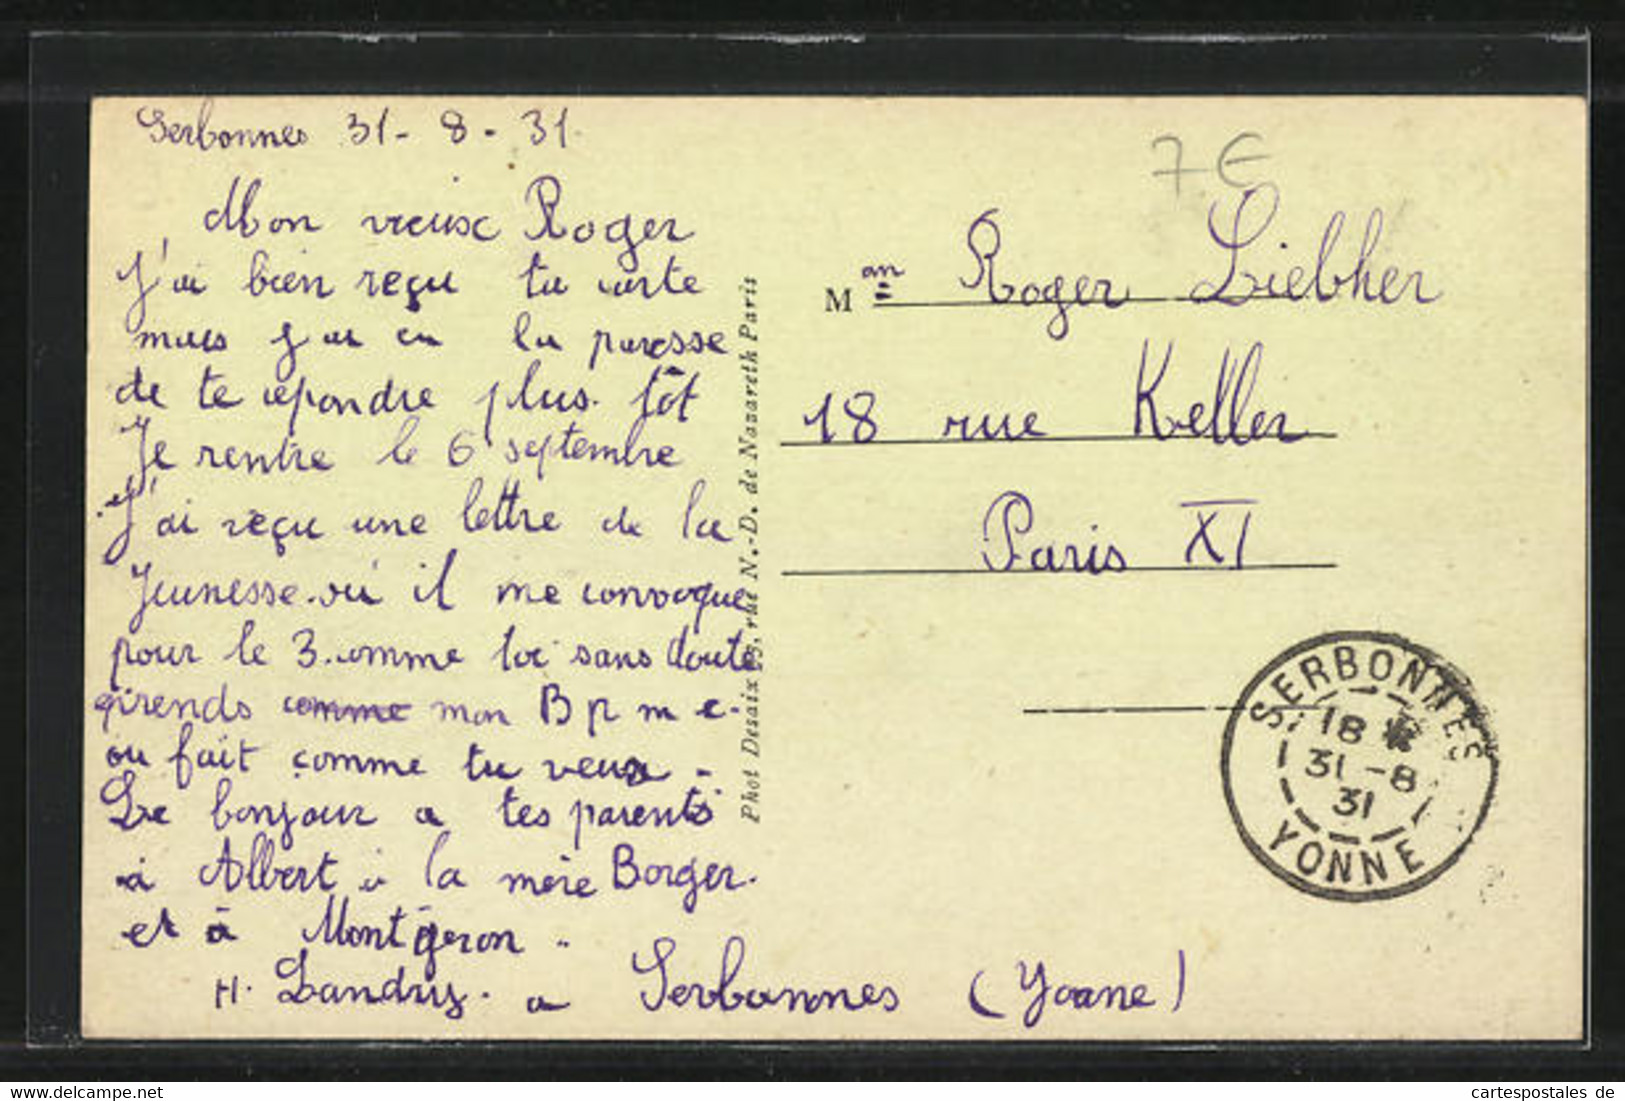 Serbonnes 31-8-31.
Mon vieux Roger
J'ai bien reçu ta carte
mais j'ai eu la paresse
de te repondre plus tôt
Je rentre le 6 septembre
J'ai reçu une lettre de la
Jeunesse où il me convoque
pour le 3. comme toi sans doute
prends comme mon B p m e.
ou fait comme tu veux -
Le bonjour a tes parents
à Albert à la mère Borger.
et à Montgeron.
H. Landry. a Serbonnes (Yonne)
Phot Desaix 13, rue N.-D. de Nazareth Paris
7 €
M an Roger Liebher
18 rue Keller
Paris XI
SERBONNES
18 *
31-8
31
YONNE
TM-92
cartespostales de